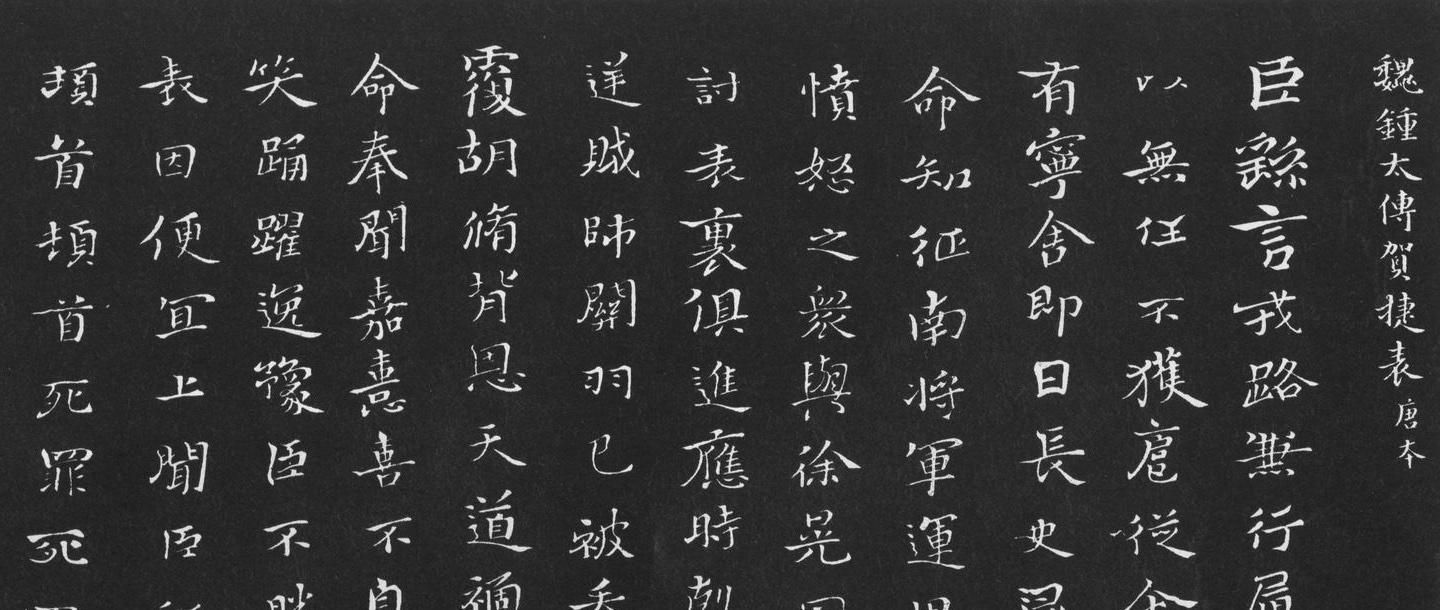 魏鍾太傅賀捷表唐本
臣繇言戎路兼行
以無任不獲扈從
有寧舍即日長史
命知征南将軍運
憤怒之衆與徐晃
討表裏俱進應時
逆賊帥關羽已被
覆胡脩背恩天道
命奉聞嘉憙喜不
笑踊躍逸豫臣不
表因便宜上聞臣
頓首頓首死罪死